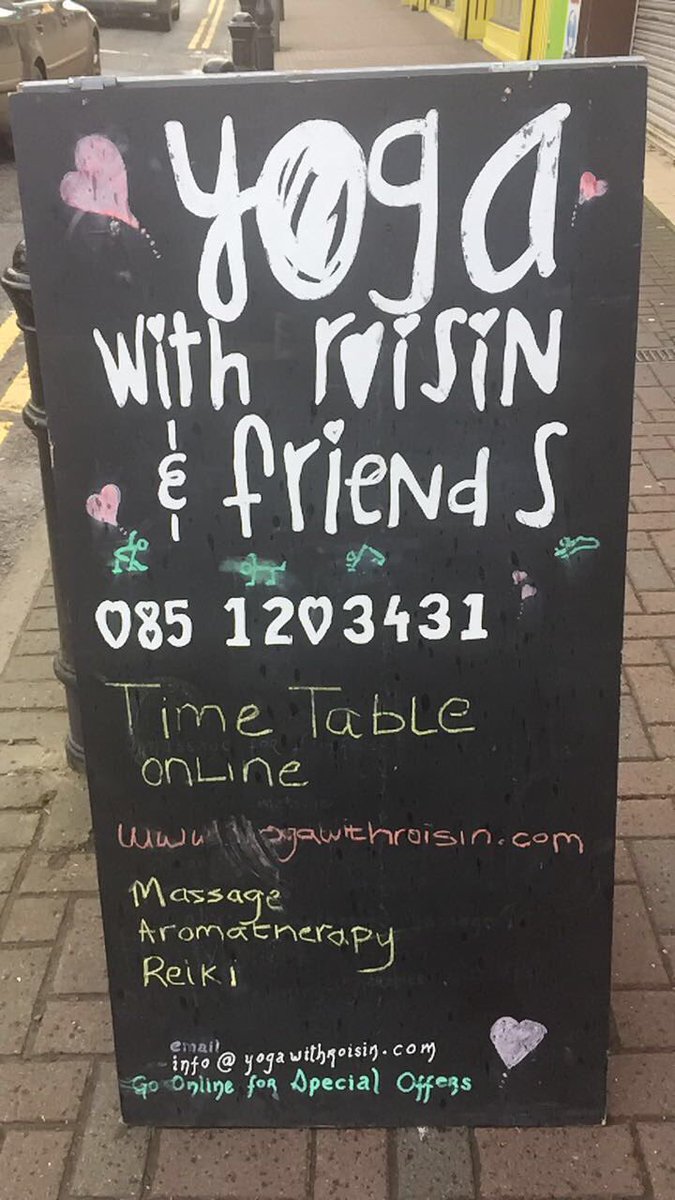 yoga
with roisin
& friends
085 1203431
Time Table
online
www.yogawithroisin.com
Massage
Aromatherapy
Reiki
email
info@yogawithroisin.com
Go Online for Special Offers